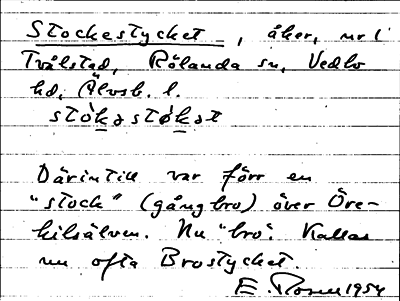 Stockestycket, åker, nr 1
Tvålsted, Rölanda sn, Vedbo
hd, Älvsb. l.
stòkəstøkət
Därintill var förr en
"stock" (gångbro) över Öre-
kilsälven. Nu "bro". Kallas
nu ofta Brostycket.
E. Rosell 1954